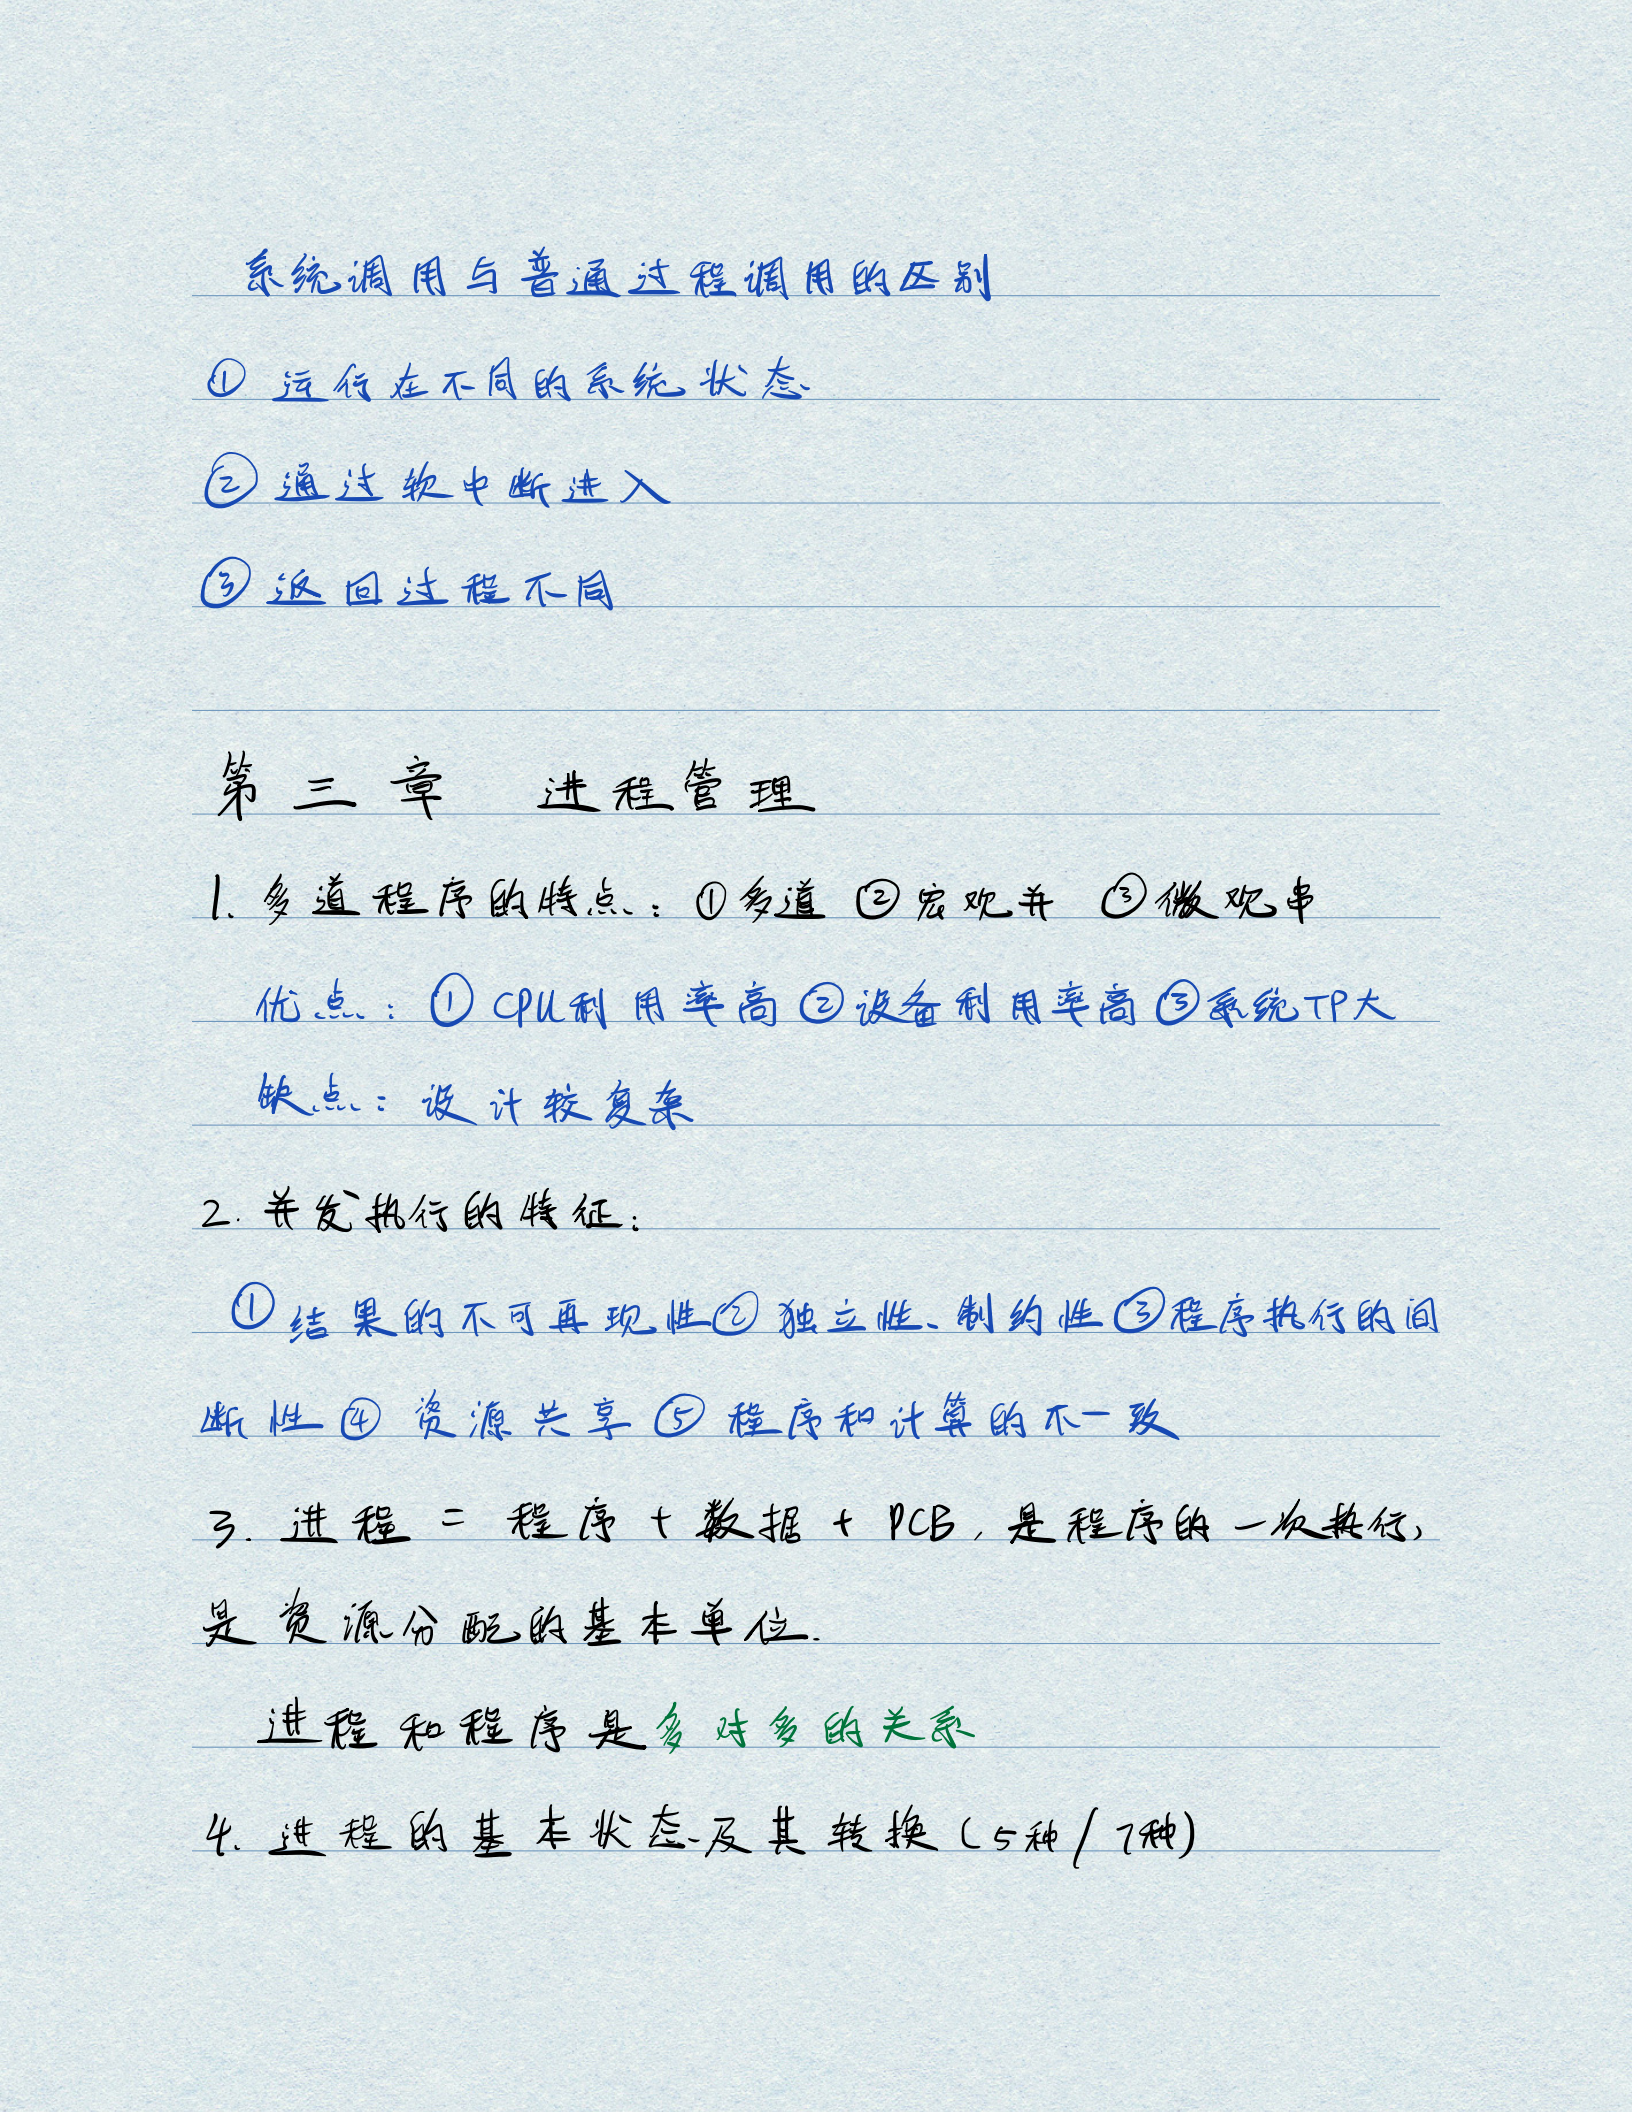 系统调用与普通过程调用的区别
① 运行在不同的系统状态
② 通过软中断进入
③ 返回过程不同
第三章 进程管理
1. 多道程序的特点：①多道 ②宏观并 ③微观串
优点：①CPU利用率高②设备利用率高③系统TP大
缺点：设计较复杂
2. 并发执行的特征：
①结果的不可再现性②独立性、制约性③程序执行的间
断性④资源共享⑤程序和计算的不一致
3. 进程 = 程序 + 数据 + PCB，是程序的一次执行，
是资源分配的基本单位.
进程和程序是多对多的关系
4. 进程的基本状态及其转换（5种/7种）